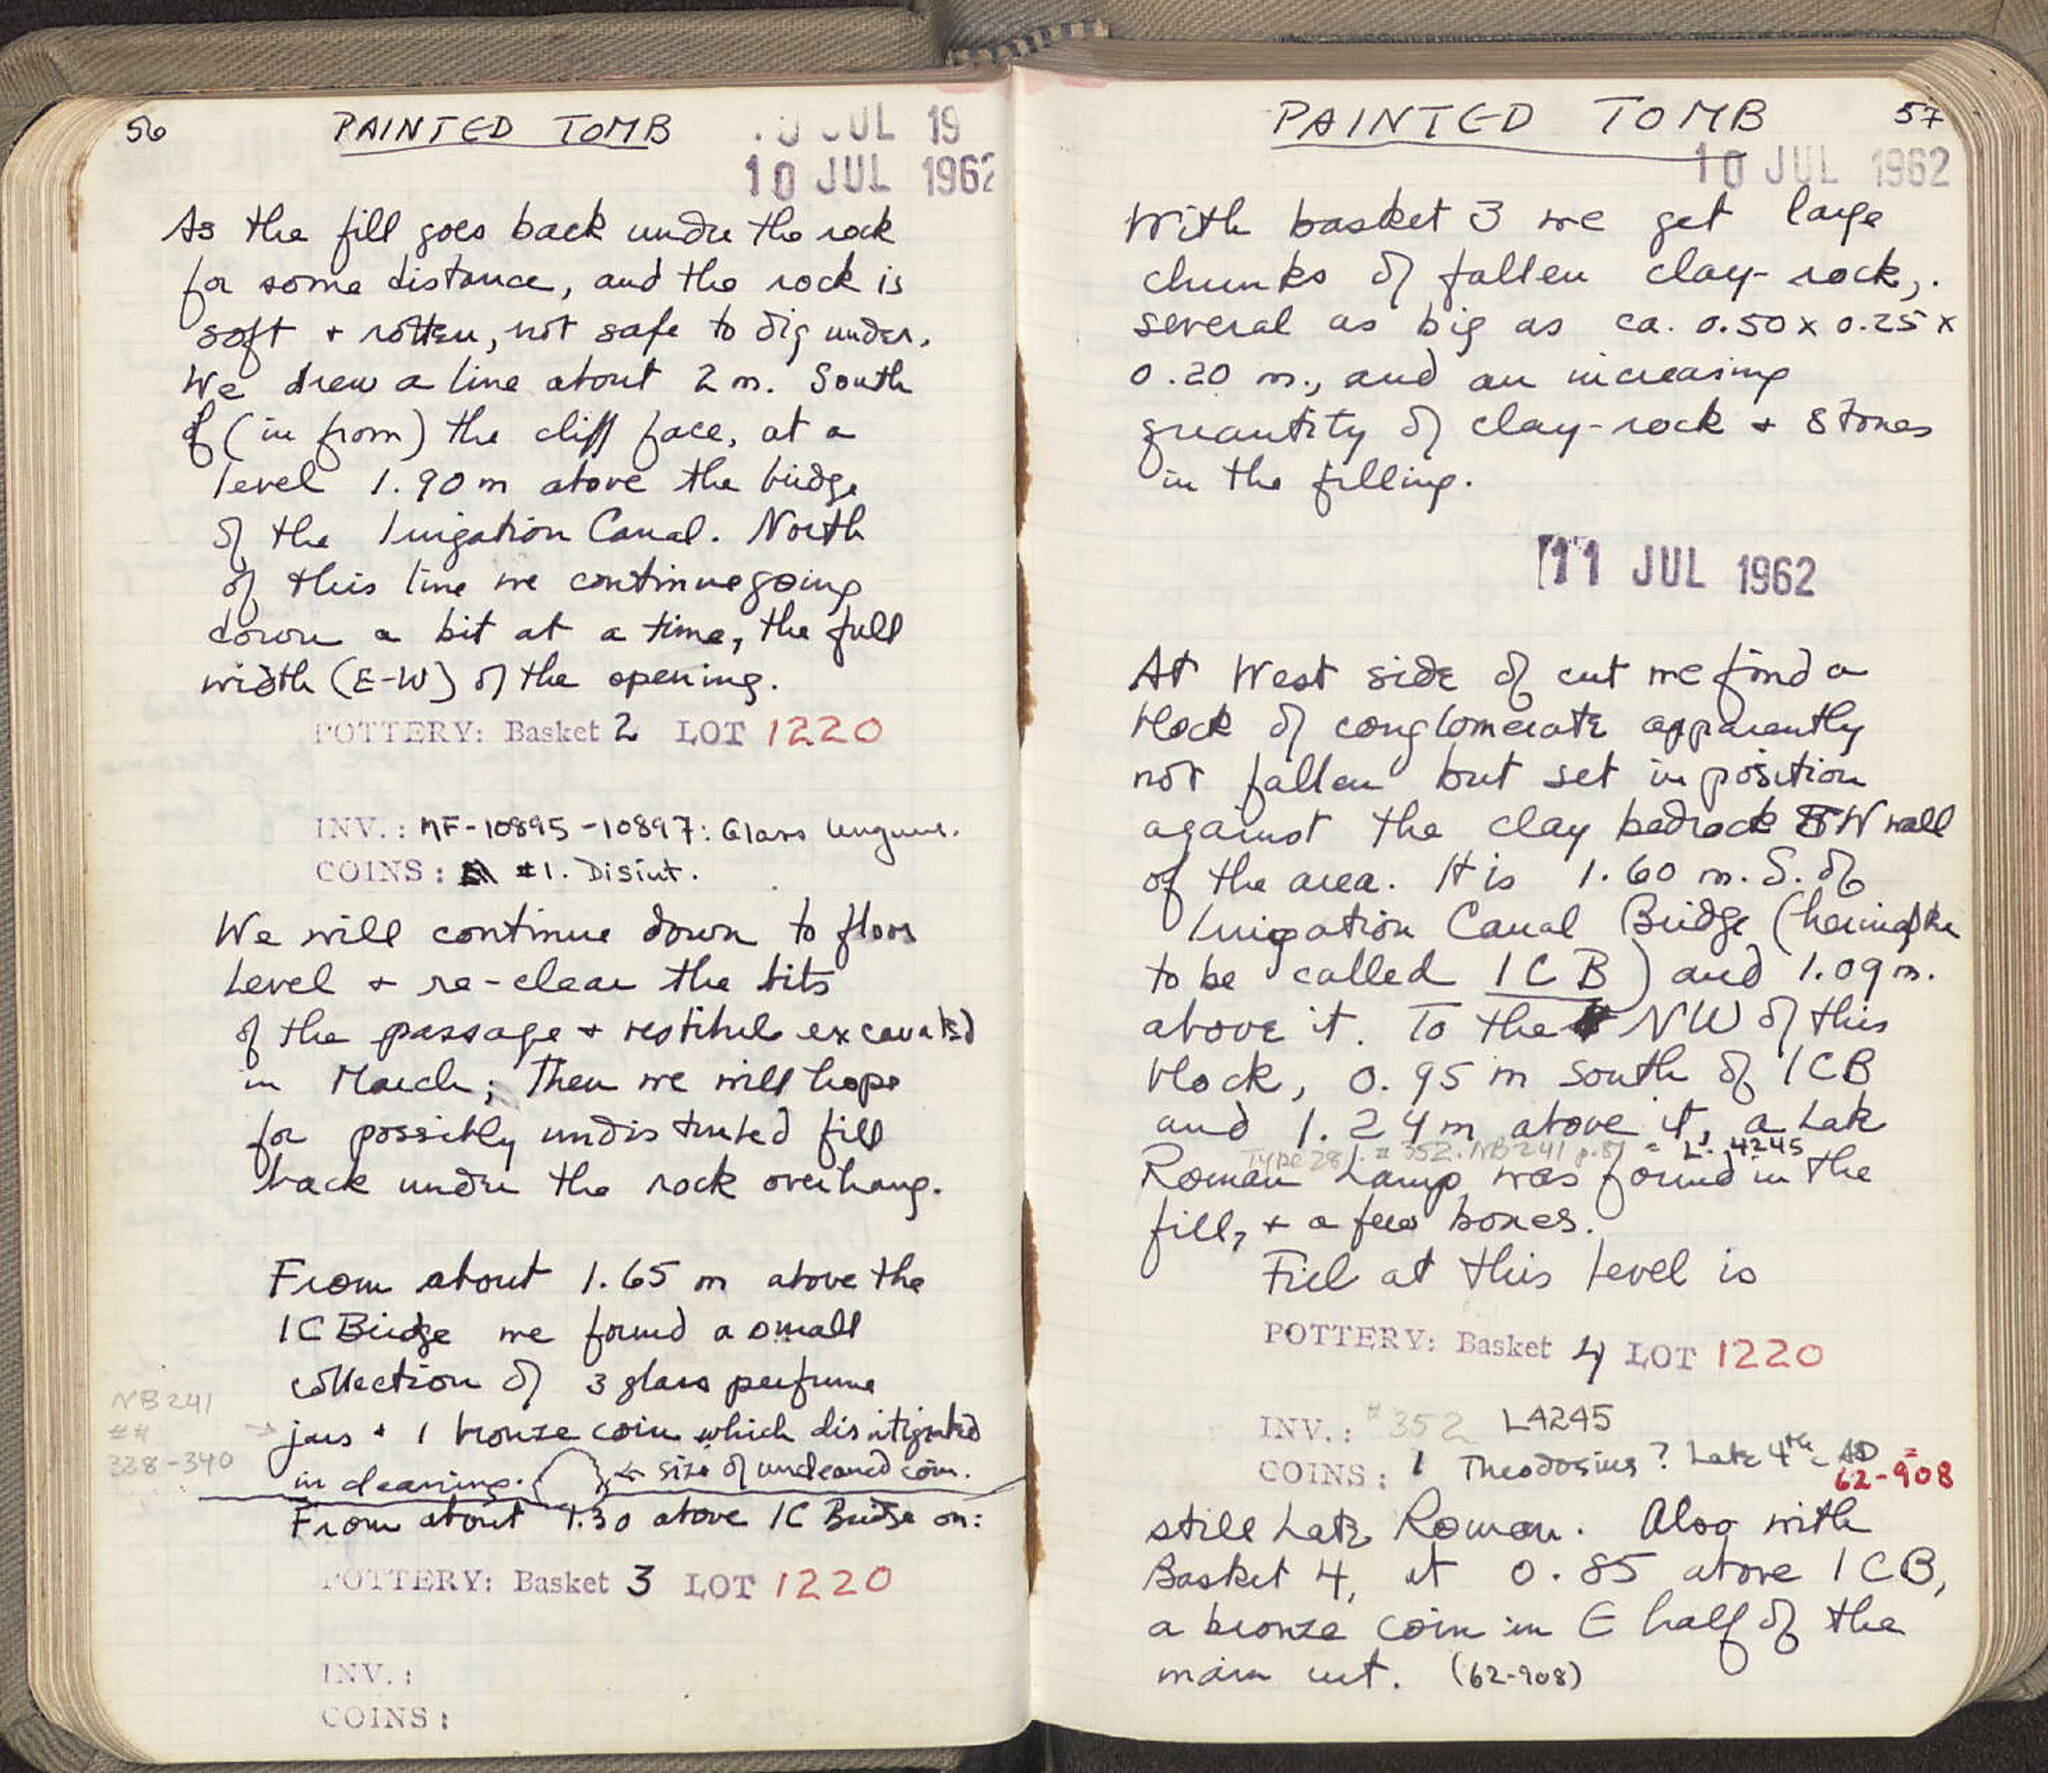 56 PAINTED TOMB JUL 19
10 JUL 1962
As the fill goes back under the rock
for some distance, and the rock is
soft + rotten, not safe to dig under.
We drew a line about 2 m. South
of (in from) the cliff face, at a
level 1.90 m above the bridge
of the Irrigation Canal. North
of this line we continue going
down a bit at a time, the full
width (E-W) of the opening.
POTTERY: Basket 2 LOT 1220
INV.: MF-10895-10897: Glass unguent.
COINS: #1. Disint.
We will continue down to floor
level + re-clear the bits
of the passage + vestibule excavated
in March; Then we will hope
for possibly undisturbed fill
back under the rock overhang.
From about 1.65 m above the
IC Bridge we found a small
collection of 3 glass perfume
jars + 1 bronze coin which disintigrated
in cleaning. ← size of uncleaned coin.
NB 241
##
338-340
→
From about 1.30 above IC Bridge on:
POTTERY: Basket 3 LOT 1220
INV.:
COINS:
PAINTED TOMB 57
10 JUL 1962
With basket 3 we get large
chunks of fallen clay-rock,
several as big as ca. 0.50 x 0.25 x
0.20 m., and an increasing
quantity of clay-rock + stones
in the filling.
11 JUL 1962
At West side of cut we find a
block of conglomerate apparently
not fallen but set in position
against the clay bedrock W wall
of the area. It is 1.60 m. S. of
Irrigation Canal Bridge (hereinafter
to be called ICB) and 1.09 m.
above it. To the NW of this
block, 0.95 m south of ICB
and 1.24 m above it, a Late
Type 28. #352. NB 241 p.81 = L. 4245
Roman Lamp was found in the
fill, + a few bones.
Fill at this level is
POTTERY: Basket 4 LOT 1220
INV.: #352 L4245
COINS: 1 Theodosius? Late 4th c AD =
62-908
still Late Roman. Also with
Basket 4, at 0.85 above ICB,
a bronze coin in E half of the
main cut. (62-908)